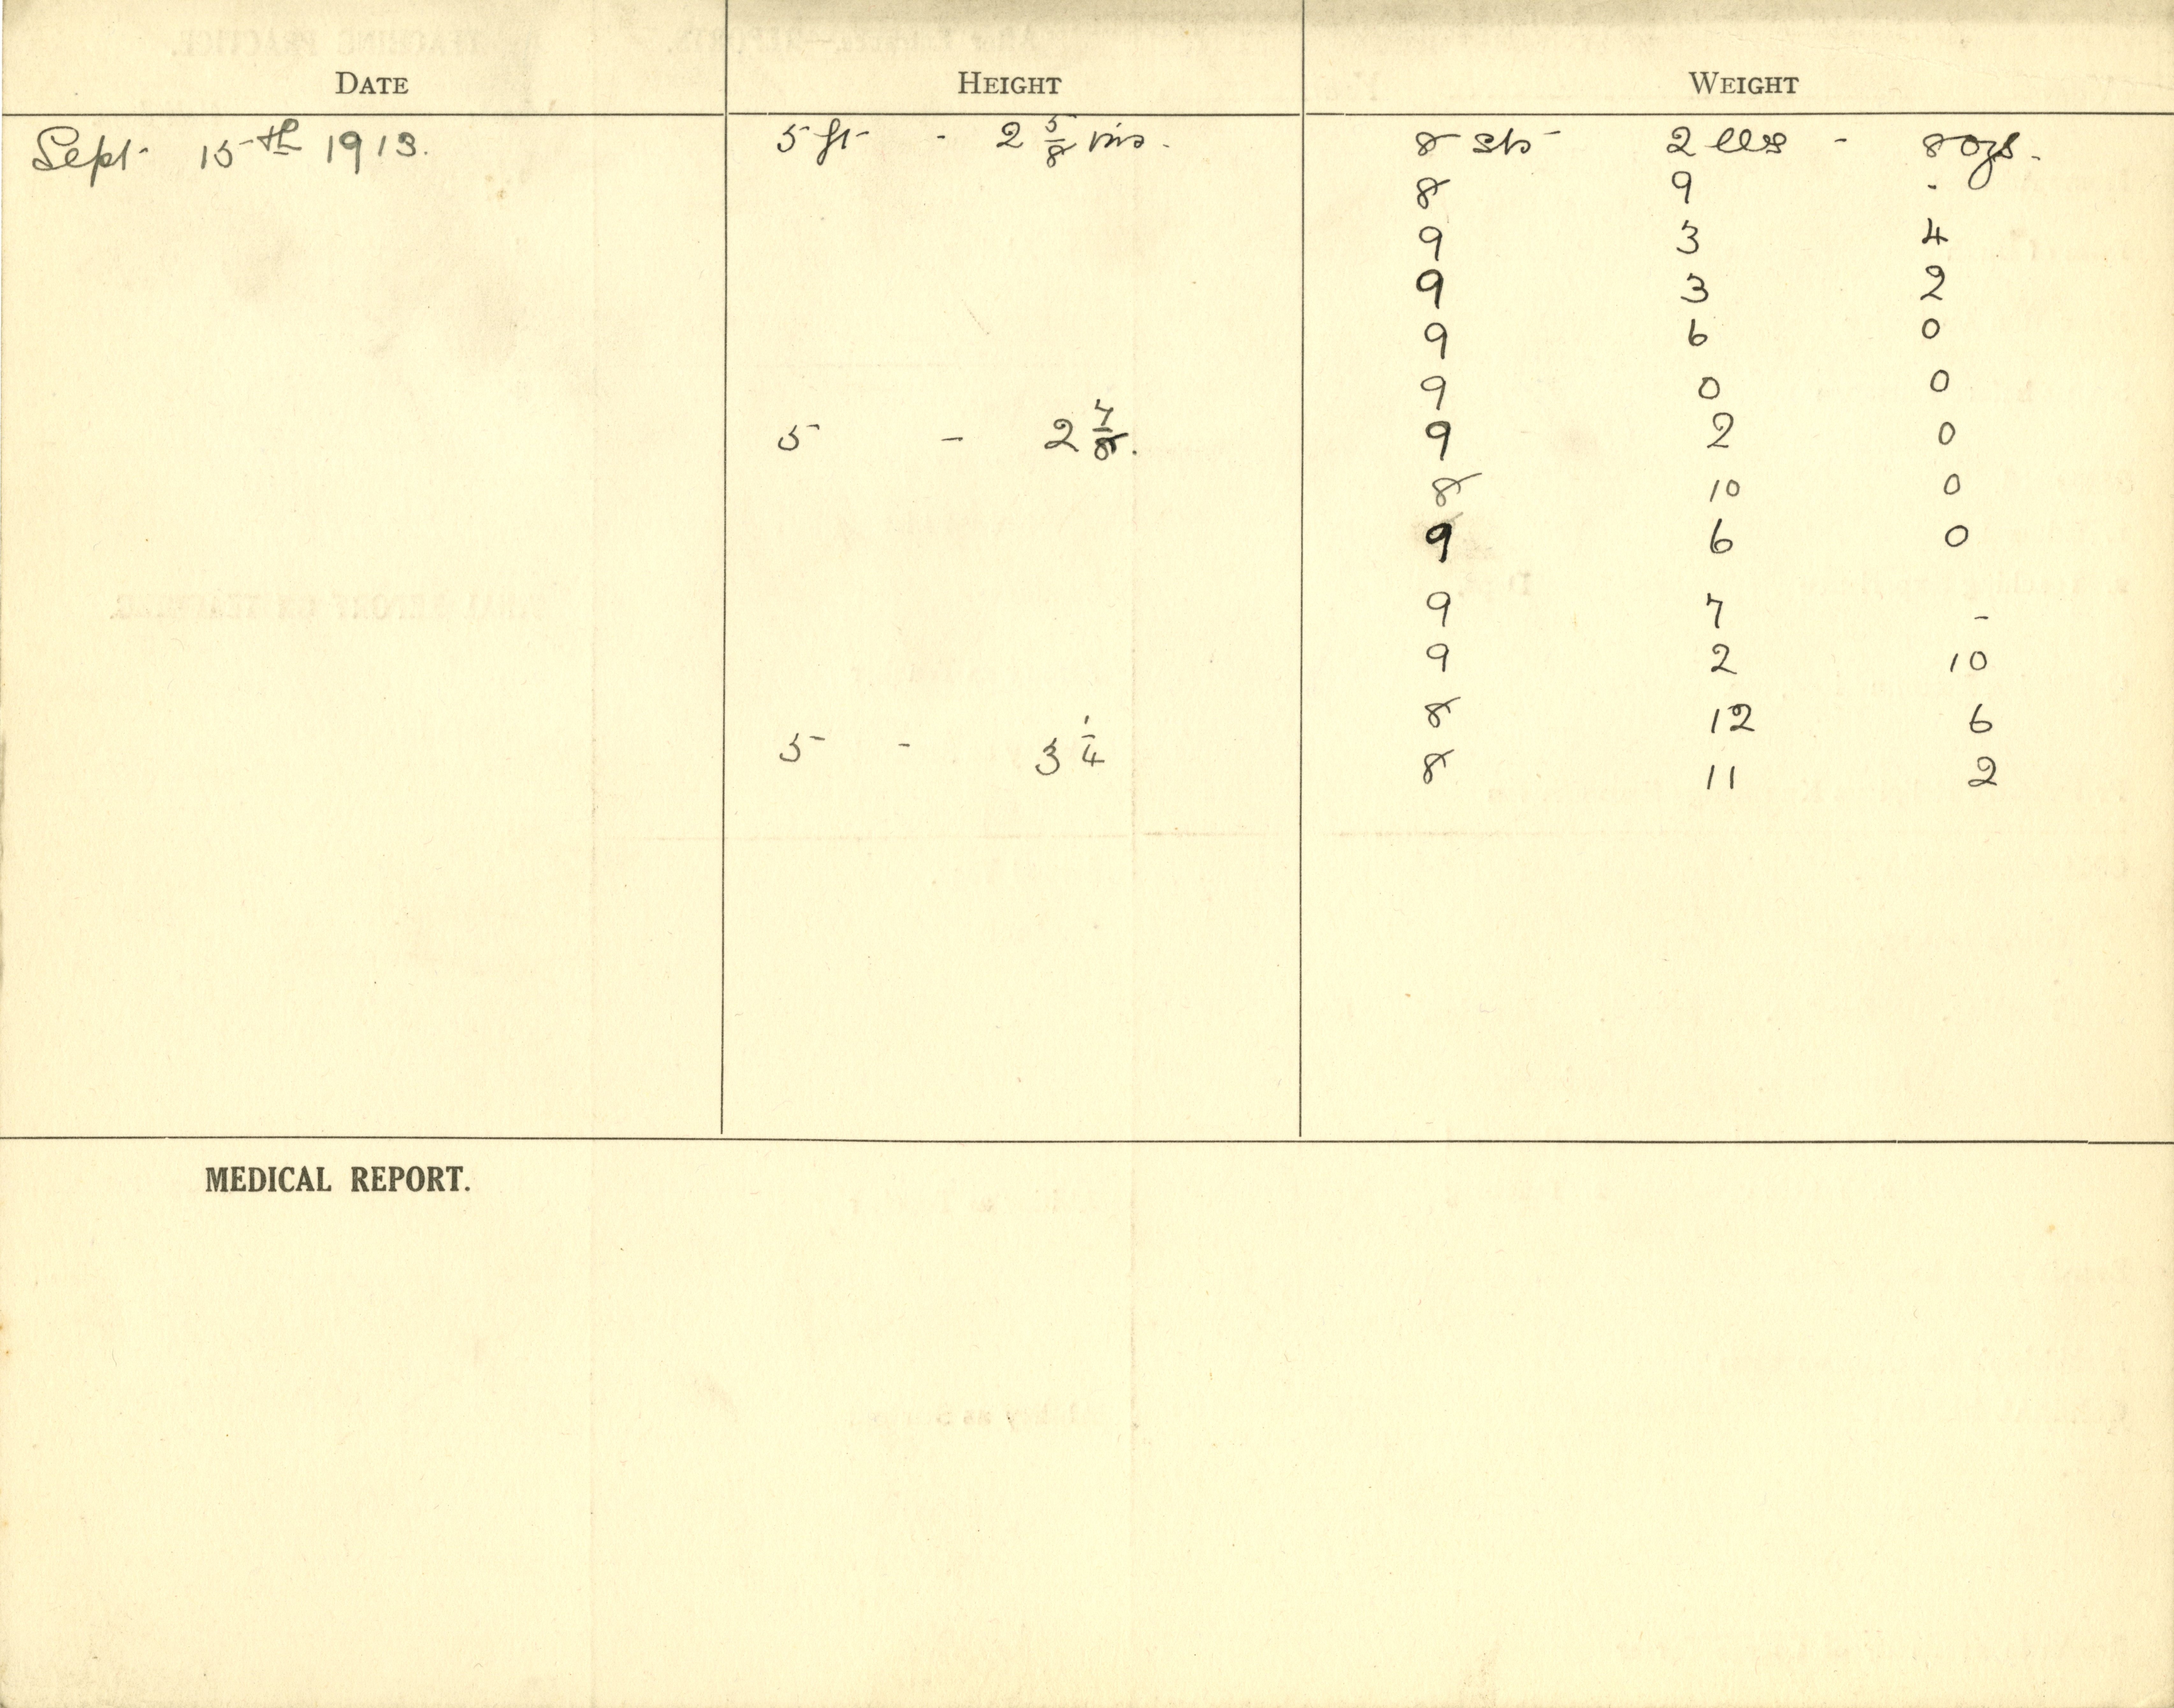 DATE HEIGHT WEIGHT
Sept. 15th 1913. 5 ft - 2 5/8 ins. 8 sts 2 lbs - 8 ozs.
8 9 -
9 3 4
9 3 2
9 6 0
9 0 0
5 - 2 7/8. 9 2 0
8 10 0
9 6 0
9 7 -
9 2 10
8 12 6
5 - 3 1/4 8 11 2
MEDICAL REPORT.